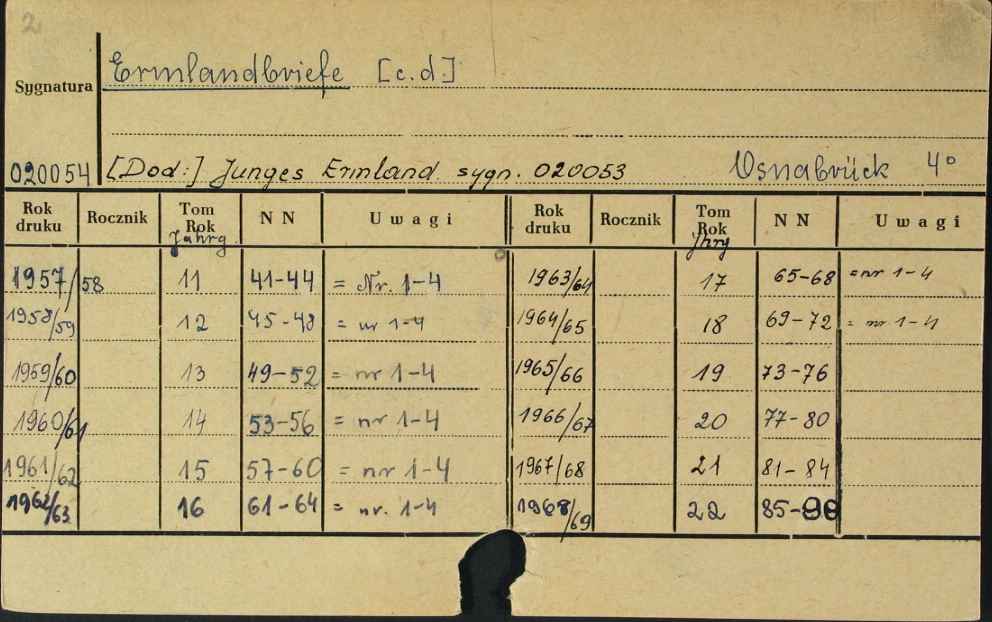 2
Ermlandbriefe [c.d.]
Sygnatura
020054 [Dod:] Junges Ermland sygn. 020053 Osnabrück 4°
Rok druku Rocznik Tom Rok Jahrg. NN Uwagi Rok druku Rocznik Tom Rok Jhrg NN Uwagi
1957/58 11 41-44 = Nr. 1-4 1963/64 17 65-68 = nr 1-4
1958/59 12 45-48 = nr 1-4 1964/65 18 69-72 = nr 1-4
1959/60 13 49-52 = nr 1-4 1965/66 19 73-76
1960/61 14 53-56 = nr 1-4 1966/67 20 77-80
1961/62 15 57-60 = nr 1-4 1967/68 21 81-84
1962/63 16 61-64 = nr. 1-4 1968/69 22 85-